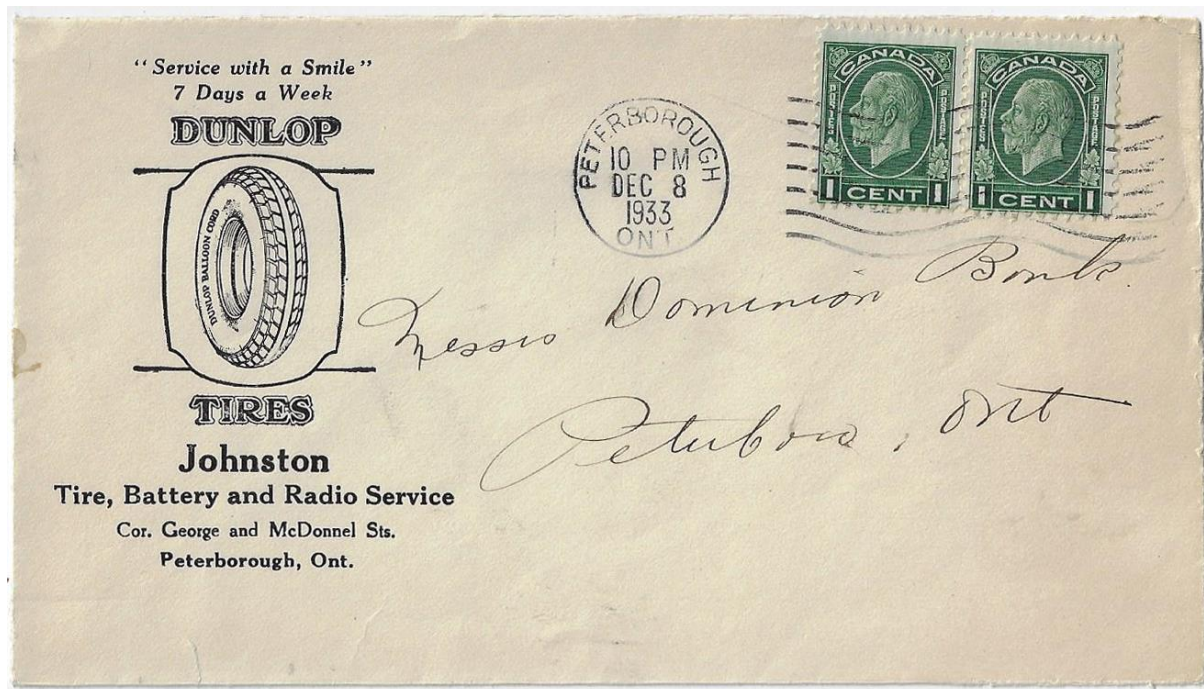 “Service with a Smile”
7 Days a Week
DUNLOP
DUNLOP BALLOON CORD
TIRES
Johnston
Tire, Battery and Radio Service
Cor. George and McDonnel Sts.
Peterborough, Ont.
PETERBOROUGH
10 PM
DEC 8
1933
ONT
CANADA
POSTES POSTAGE
1 CENT 1
CANADA
POSTES POSTAGE
1 CENT 1
Messrs Dominion Bank.
Peterboro, Ont